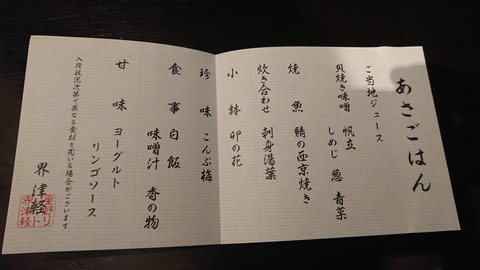 あさごはん
ご当地ジュース
貝焼き味噌 帆立
しめじ 葱 青菜
焼 魚 鯖の西京焼き
炊き合わせ 刺身湯葉
小 鉢 卯の花
珍 味 こんぶ梅
食 事 白飯
味噌汁 香の物
甘 味 ヨーグルト
リンゴソース
入荷状況次第で異なる食材を用いる場合がございます
界 津軽